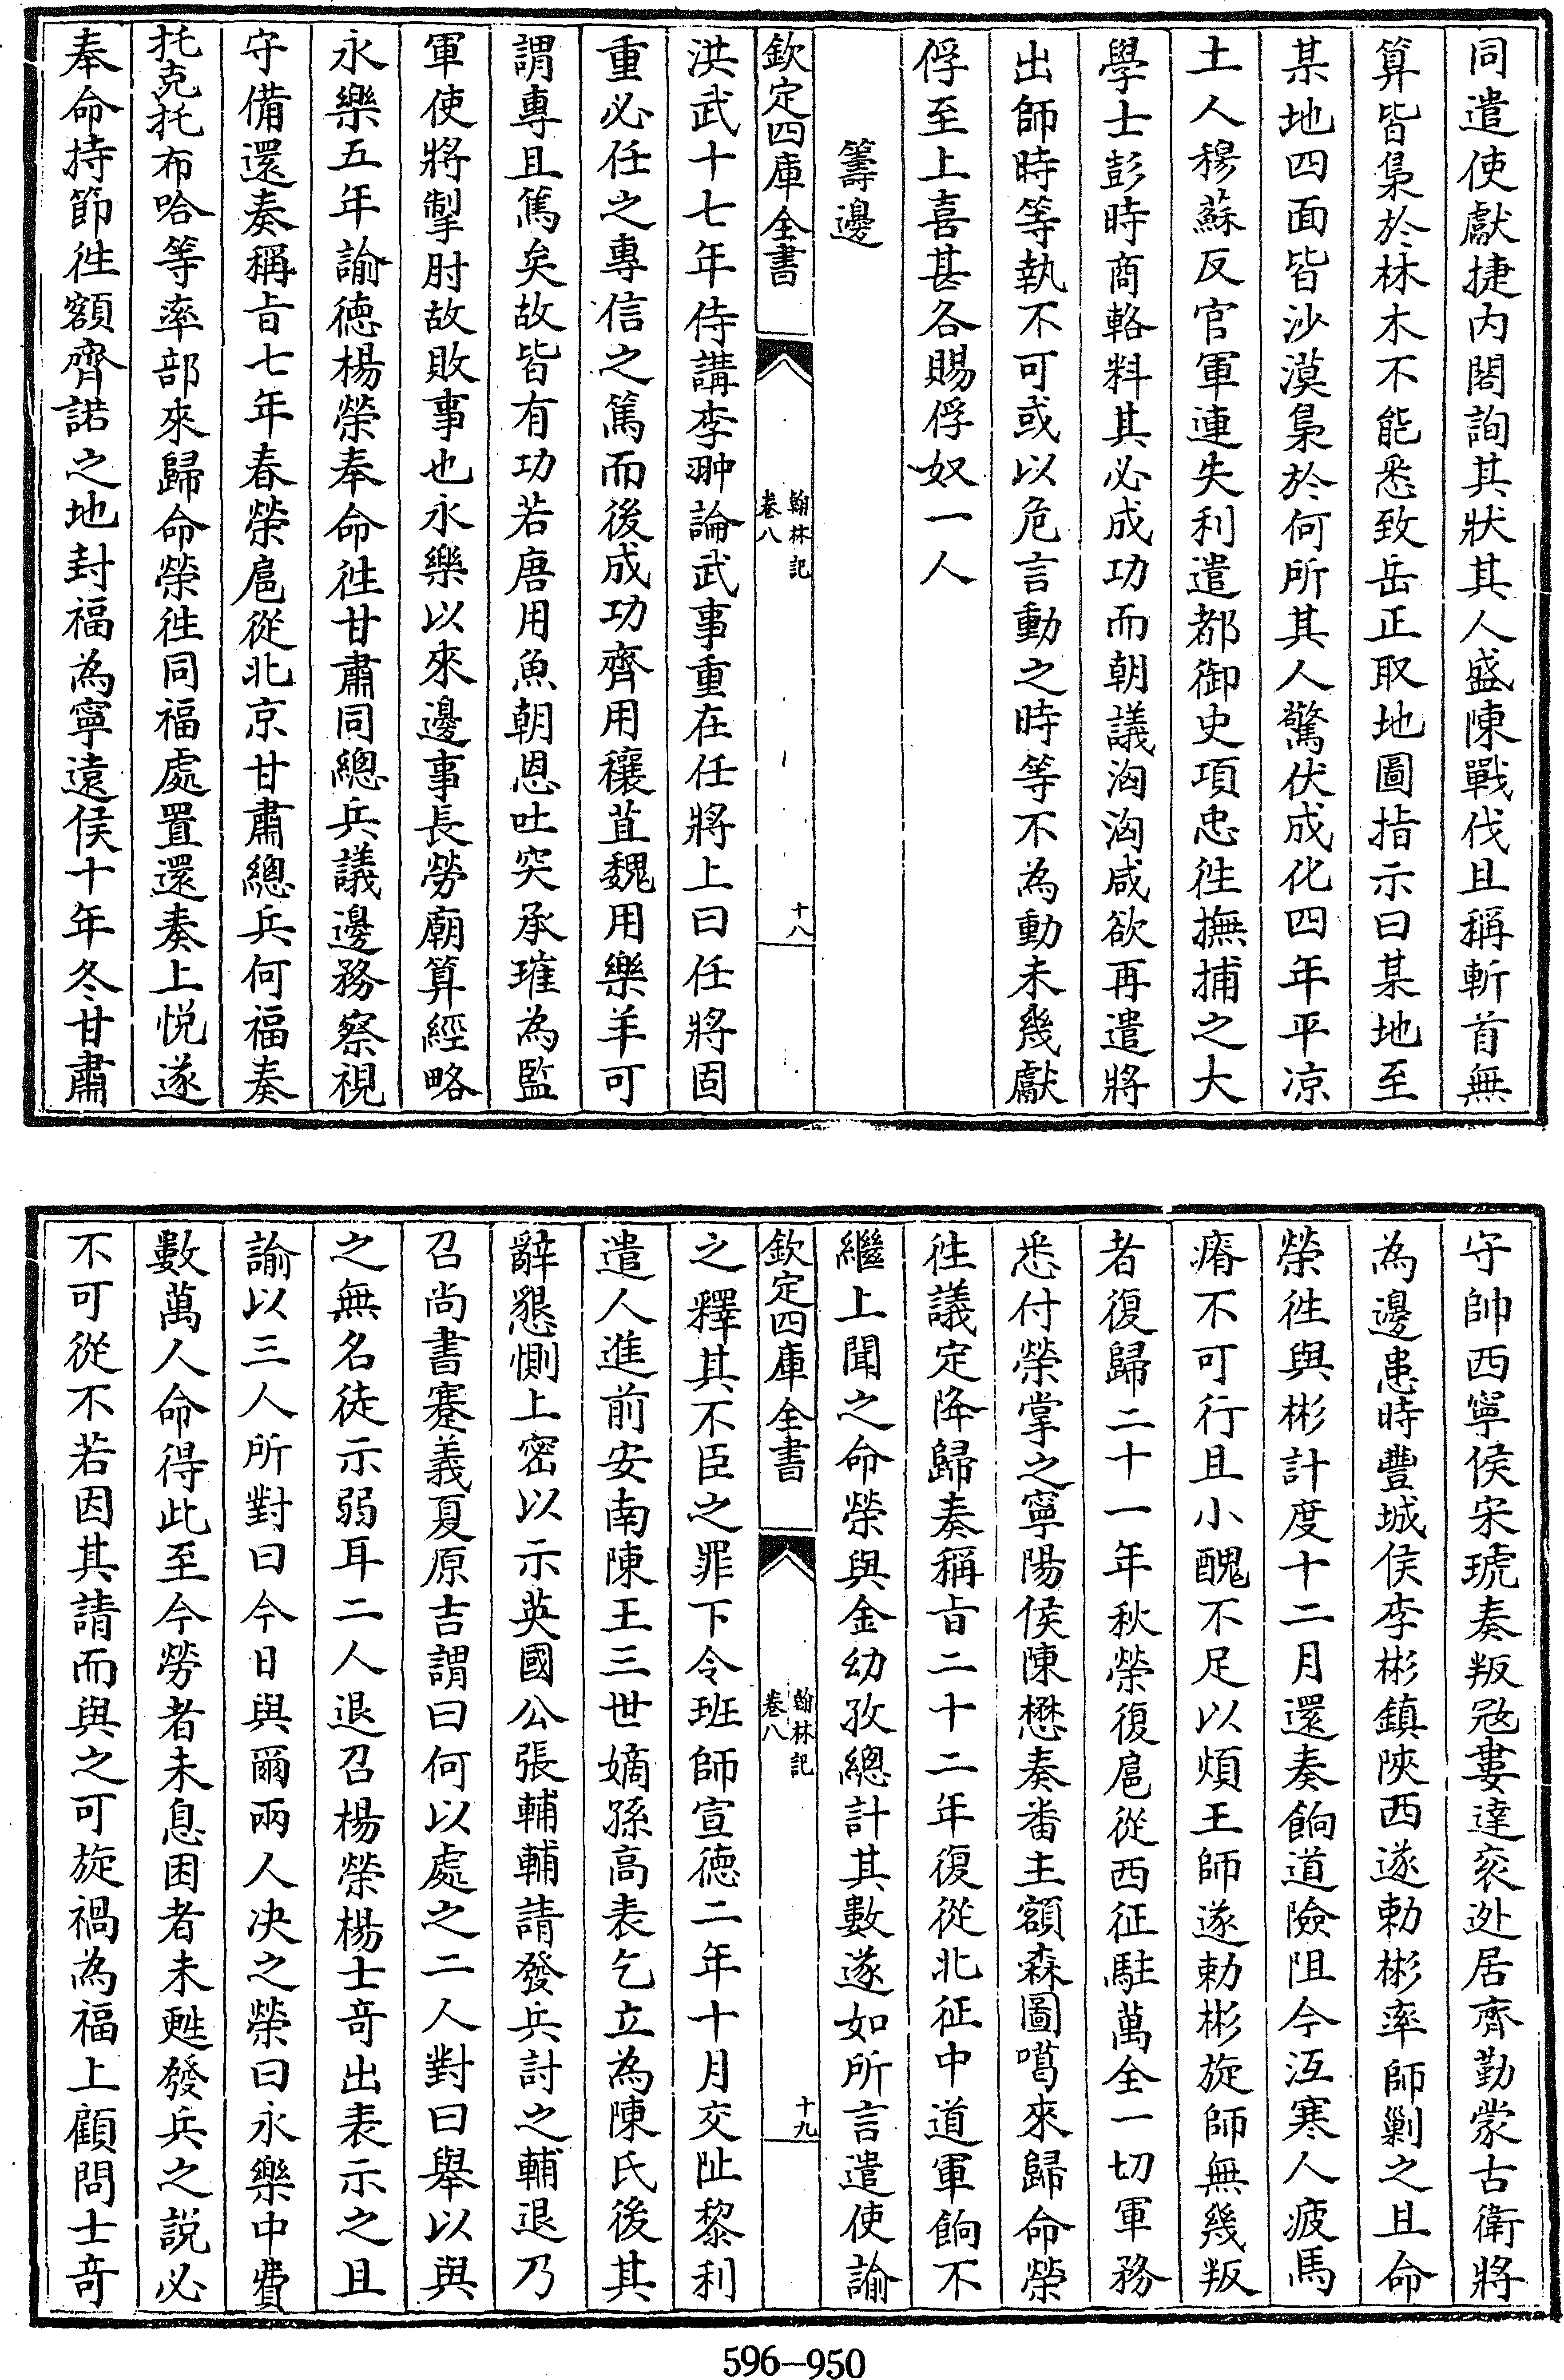 同遣使獻捷内閣詢其狀其人盛陳戰伐且稱斬首無
算皆梟於林木不能悉致岳正取地圖指示曰某地至
某地四面皆沙漠梟於何所其人驚伏成化四年平凉
土人穆蘇反官軍連失利遣都御史項忠徃撫捕之大
學士彭時商輅料其必成功而朝議洶洶咸欲再遣將
出師時等執不可或以危言動之時等不為動未幾獻
俘至上喜甚各賜俘奴一人
籌邊
欽定四庫全書
翰林記
卷八
十八
洪武十七年侍講李翀論武事重在任將上曰任將固
重必任之專信之篤而後成功齊用穰苴魏用樂羊可
謂專且篤矣故皆有功若唐用魚朝恩吐突承璀為監
軍使將掣肘故敗事也永樂以來邊事長勞廟算經略
永樂五年諭德楊榮奉命徃甘肅同總兵議邊務察視
守備還奏稱旨七年春榮扈從北京甘肅總兵何福奏
托克托布哈等率部來歸命榮徃同福處置還奏上悦遂
奉命持節徃額齊諾之地封福為寧遠侯十年冬甘肅
守帥西寧侯宋琥奏叛冦婁達衮迯居齊勤蒙古衛將
為邊患時豐城侯李彬鎮陜西遂勅彬率師剿之且命
榮徃與彬計度十二月還奏餉道險阻今沍寒人疲馬
瘠不可行且小醜不足以煩王師遂勅彬旋師無幾叛
者復歸二十一年秋榮復扈從西征駐萬全一切軍務
悉付榮掌之寧陽侯陳懋奏番主額森圖噶來歸命榮
徃議定降歸奏稱旨二十二年復從北征中道軍餉不
繼上聞之命榮與金幼孜總計其數遂如所言遣使諭
欽定四庫全書
翰林記
卷八
十九
之釋其不臣之罪下令班師宣徳二年十月交阯黎利
遣人進前安南陳王三世嫡孫高表乞立為陳氏後其
辭懇惻上密以示英國公張輔輔請發兵討之輔退乃
召尚書蹇義夏原吉謂曰何以處之二人對曰舉以與
之無名徒示弱耳二人退召楊榮楊士竒出表示之且
諭以三人所對曰今日與爾兩人决之榮曰永樂中費
數萬人命得此至今勞者未息困者未甦發兵之説必
不可從不若因其請而與之可旋禍為福上顧問士竒
596-950